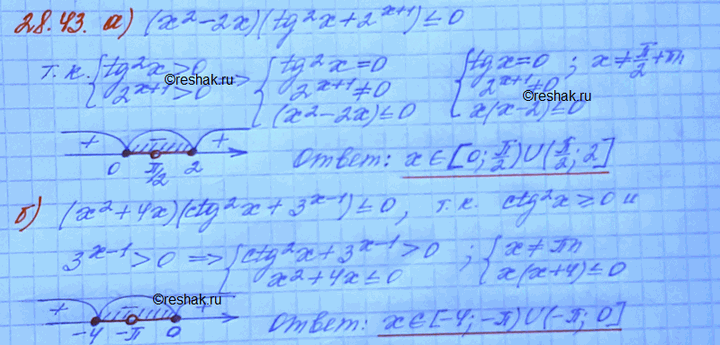 28.43. а) (x²-2x)(tg²x+2^(x+1)) ≤ 0
т.к. { tg²x>0 => { tg²x=0 { tgx=0 ; x≠π/2+πn
2^(x+1)>0 2^(x+1)≠0 2^(x+1)≠0
(x²-2x)≤0 x(x-2)≤0
©reshak.ru
©reshak.ru
+ - +
0 π/2 2
Ответ: x∈[0; π/2)∪(π/2; 2]
б) (x²+4x)(ctg²x+3^(x-1)) ≤ 0, т.к. ctg²x≥0 и
3^(x-1)>0 => { ctg²x+3^(x-1)>0 ; { x≠πn
x²+4x≤0 x(x+4)≤0
©reshak.ru
+ - +
-4 -π 0
Ответ: x∈[-4; -π)∪(-π; 0]